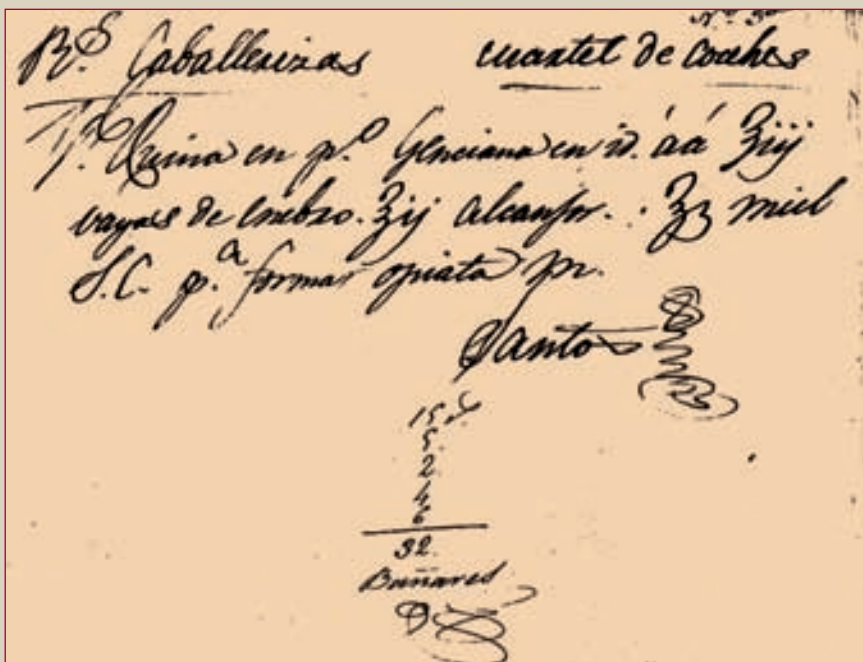 Rs. Caballerizas cuartel de coches
Quina en po. Genciana en id. áá ʒiij
vayas de enebro. ʒij alcanfor. : ʒ miel
S.C. pa. formar opiata
Santos
15
5.
2
4
6
32.
Bañares